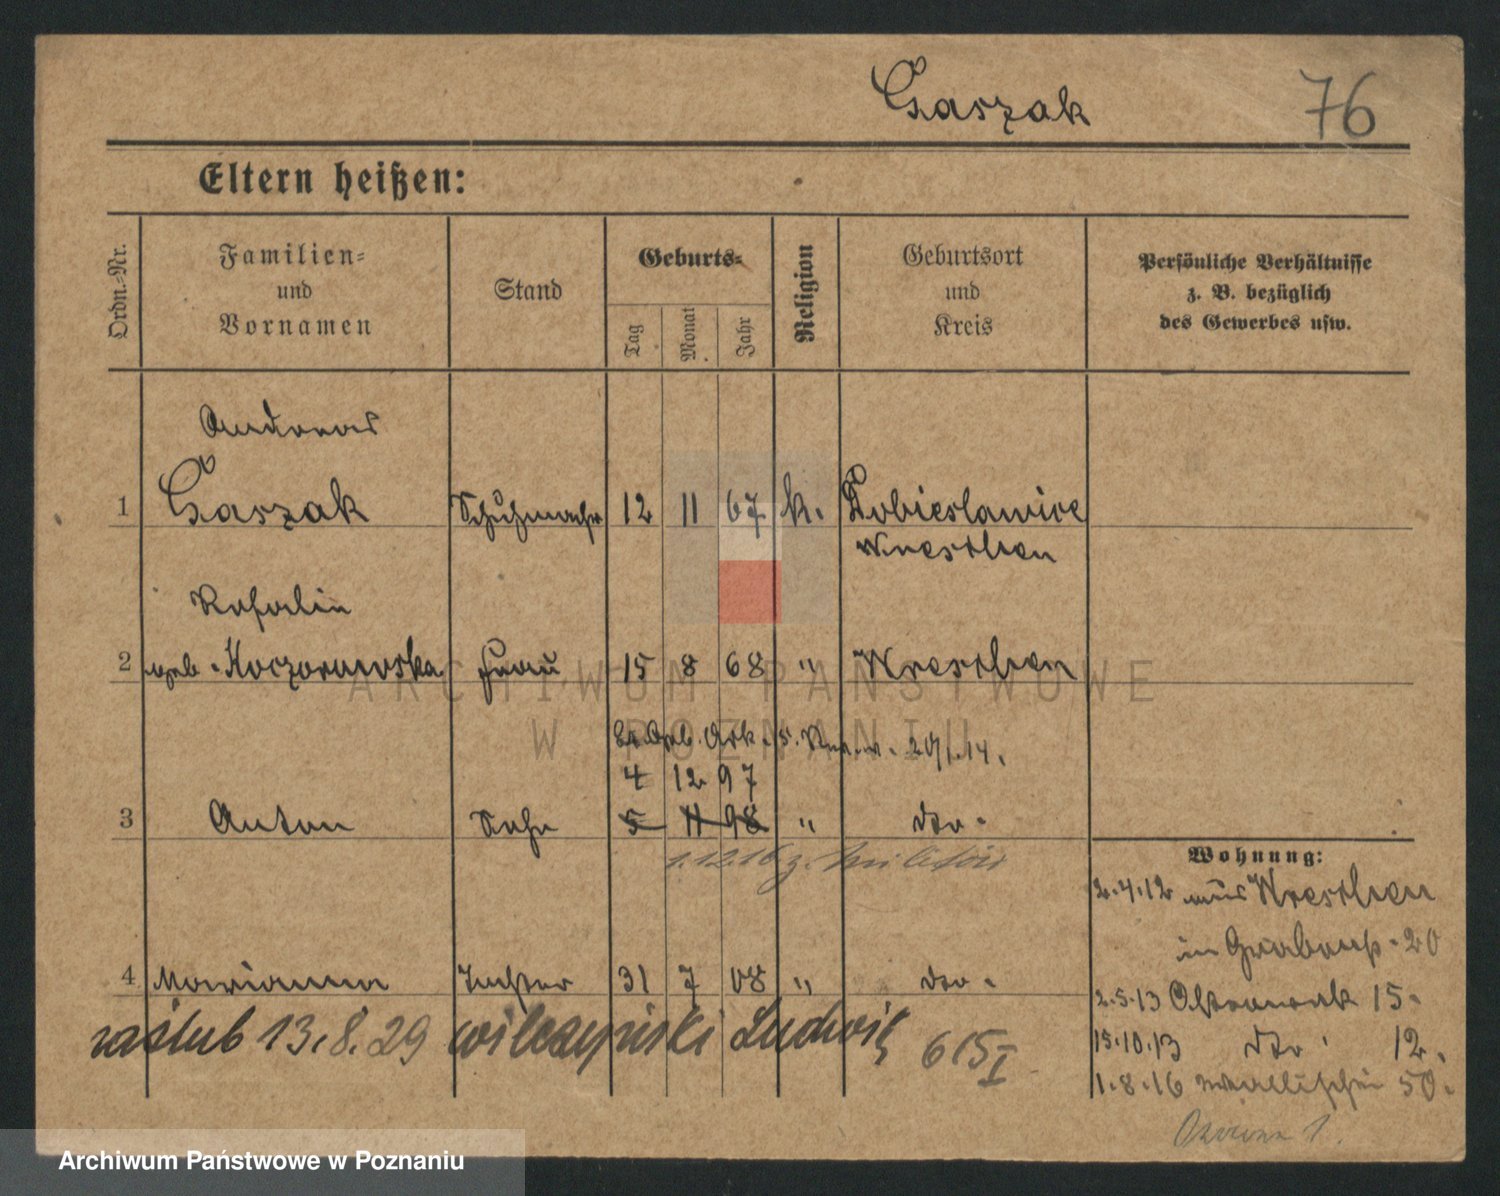 Czaszak 76
Eltern heißen:
Ordn.-Nr.
Familien-
und
Vornamen
Stand
Geburts-
Tag
Monat
Jahr
Religion
Geburtsort
und
Kreis
Persönliche Verhältnisse
z. B. bezüglich
des Gewerbes usw.
Andreas
1 Czaszak Schuhmachr 12 11 67 k.
Wreschen
2 geb. Koczorowska Frau 15 8 68 " Wreschen
ARCHIWUM PAŃSTWOWE
W POZNANIU
4 12 97
3 Anton Sohn 5 11 98 " dto.
1.12.16 z. Militär
Wohnung:
2.4.12 aus Wreschen
in 20
4 Marianna Tochter 31 7 08 " dto.
2.5.13 15.
zaślub 13.8.29 Wilczyński Ludwik 615 I
15.10.13 dto. 12.
1.8.16 Wallischei 50.
1.
Archiwum Państwowe w Poznaniu